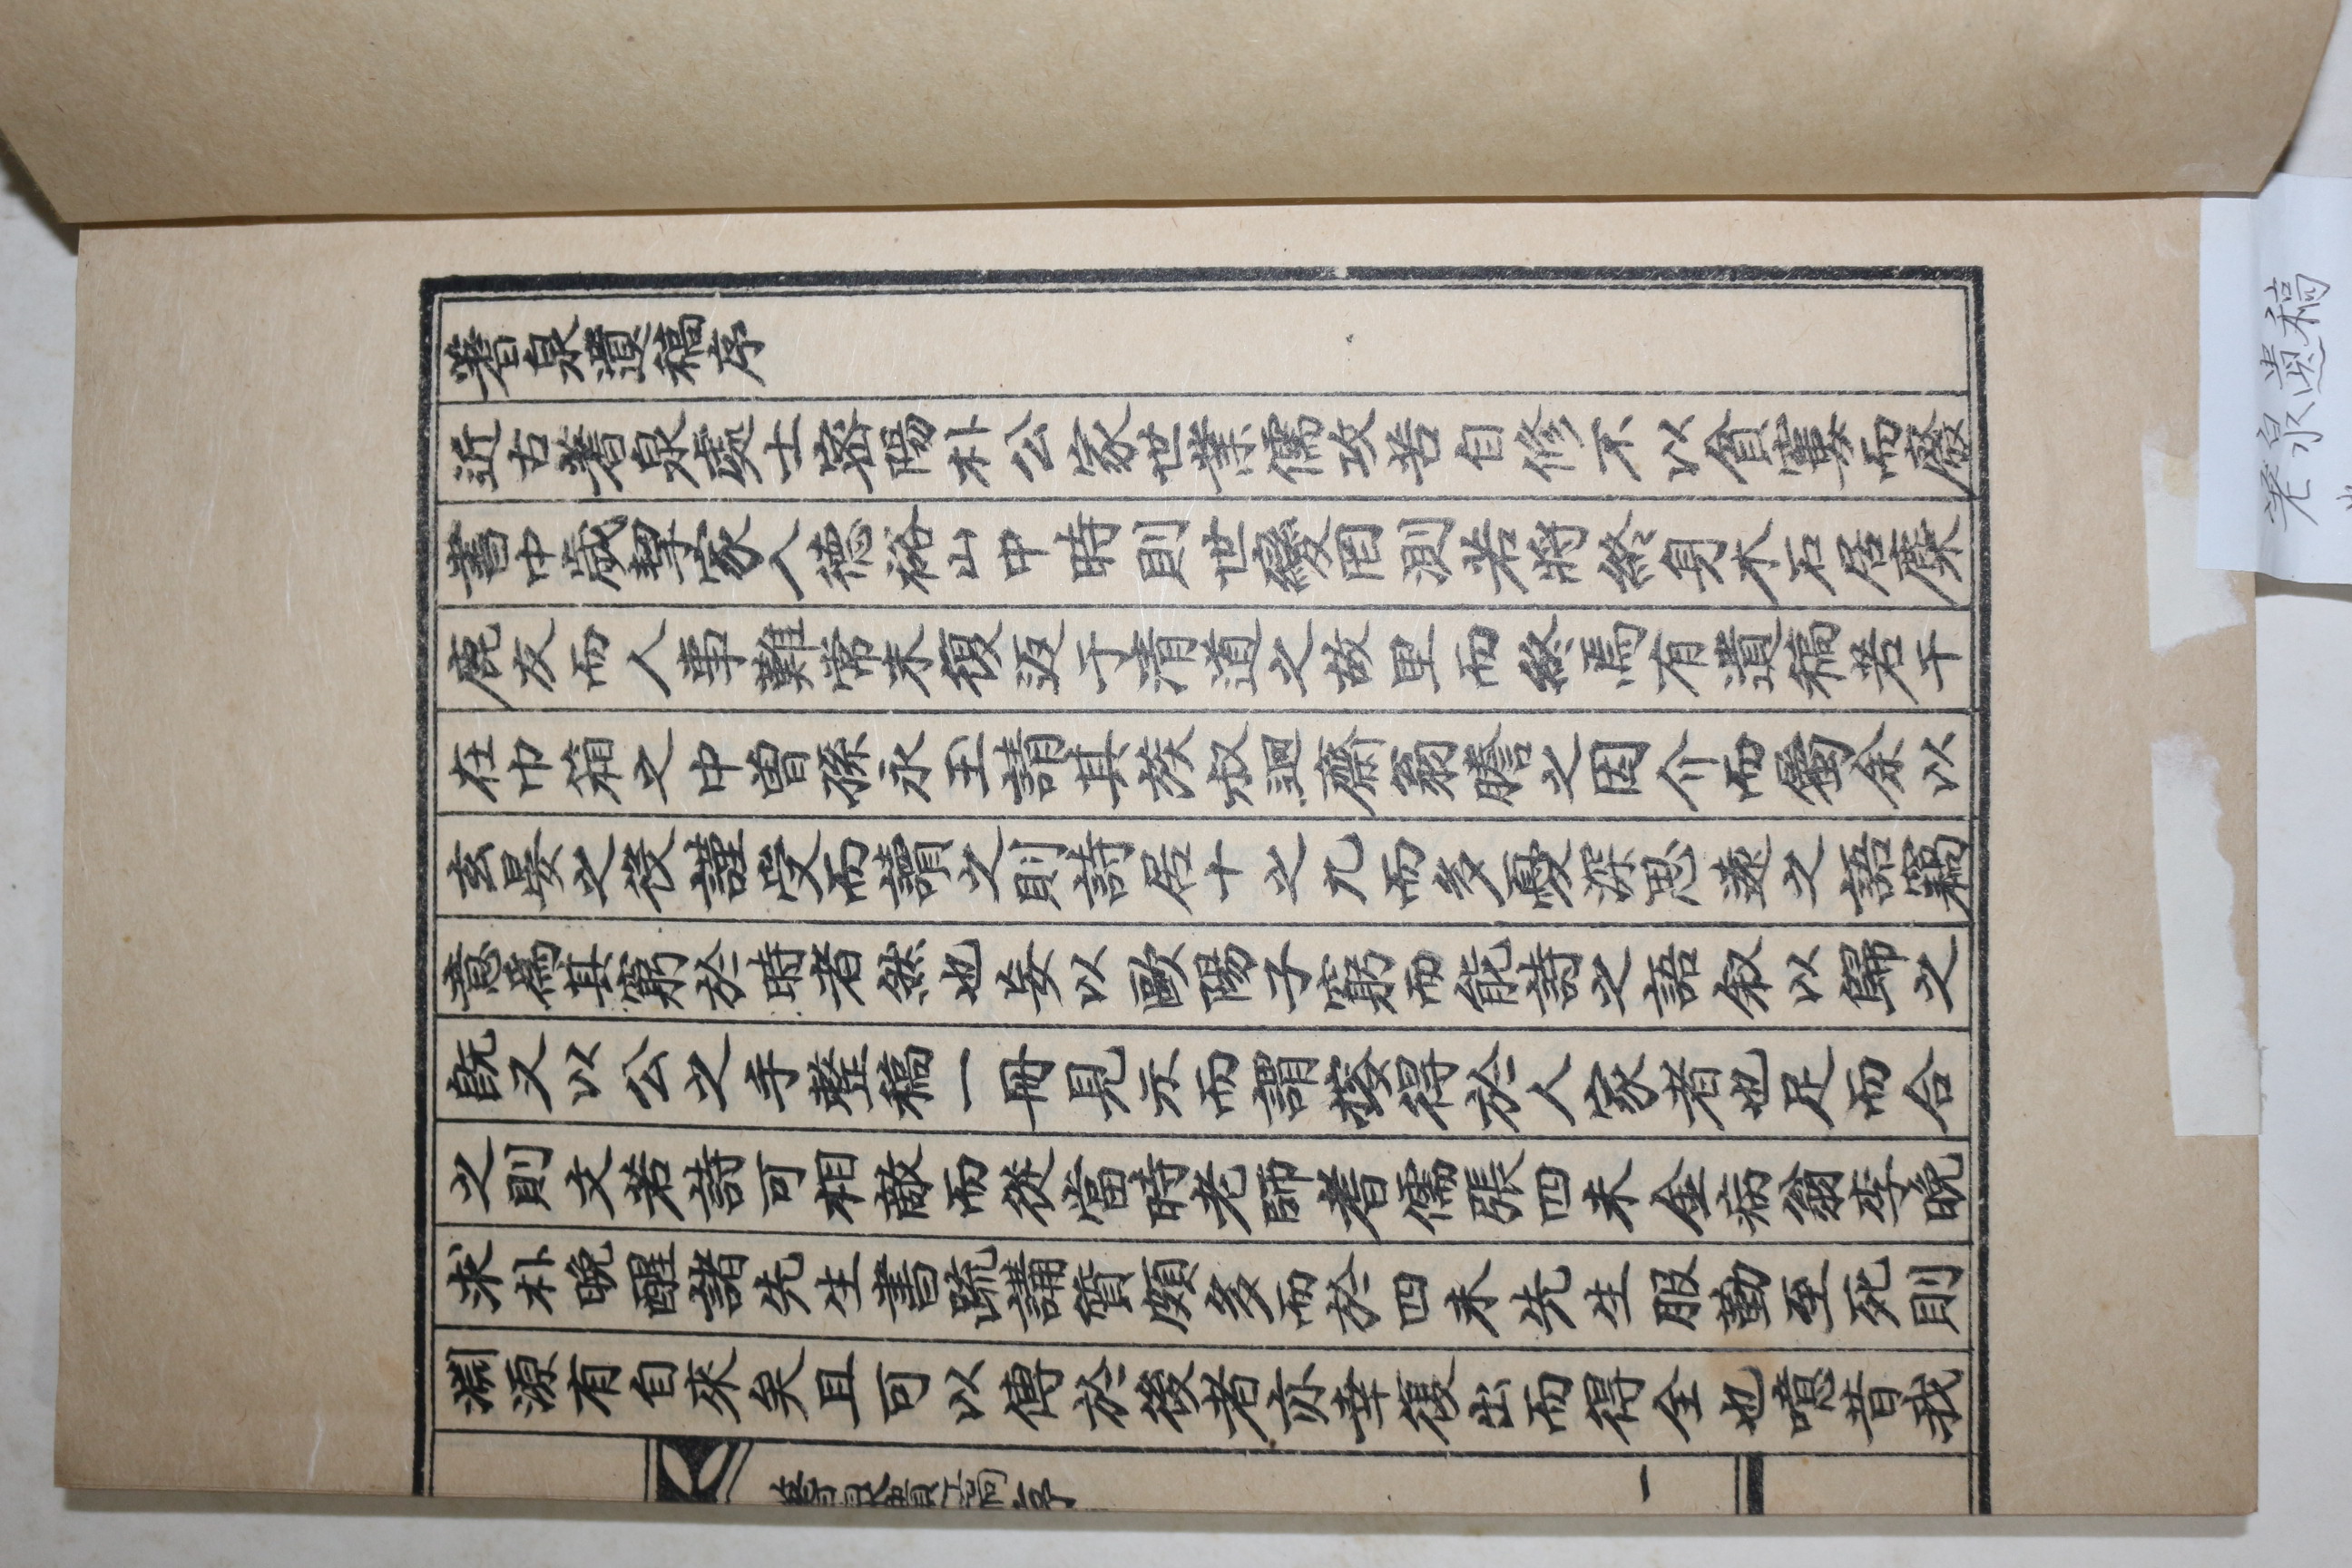 蓍泉遺稿序
近古蓍泉處士密陽朴公家世業儒攻苦自修不以貧窶而廢
書中歲挈家入德裕山中時則世變罔測若將終身木石居麋
鹿友而人事難常末復返于清道之故里而終焉有遺稿若干
在巾箱之中曾孫永玉請其族叔迴齋翁謄之因介而屬余以
玄晏之役謹受而讀之則詩居十之九而多憂深思遠之語竊
意爲其窮於時者然也妄以歐陽子窮而能詩之語叙以歸之
旣又以公之手整稿一冊見示而謂搜得於人家者也足而合
之則文若詩可相敵而從當時老師耆儒張四未金病翁李晚
求朴晚醒諸先生書疏講質頗多而於四未先生服勤至死則
淵源有自來矣且可以傳於後者亦幸復出而得全也噫昔我
蓍泉遺稿序
一
蓍泉遺稿